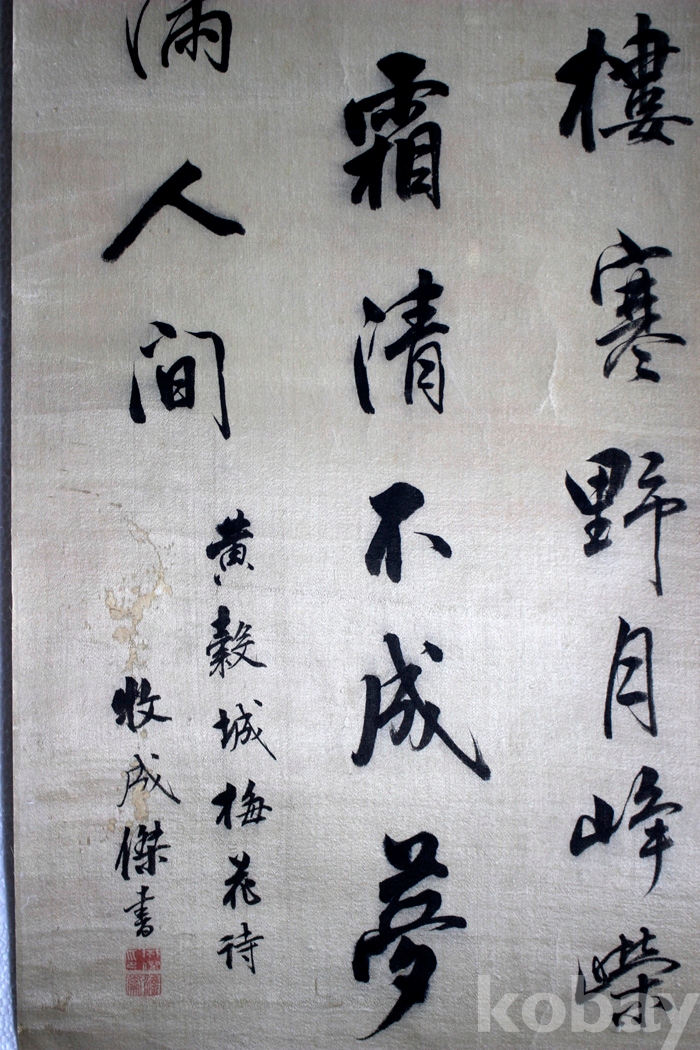 樓寒野月峰
霜清不成夢
滿人間
黄穀城梅花詩
成傑書
kobay